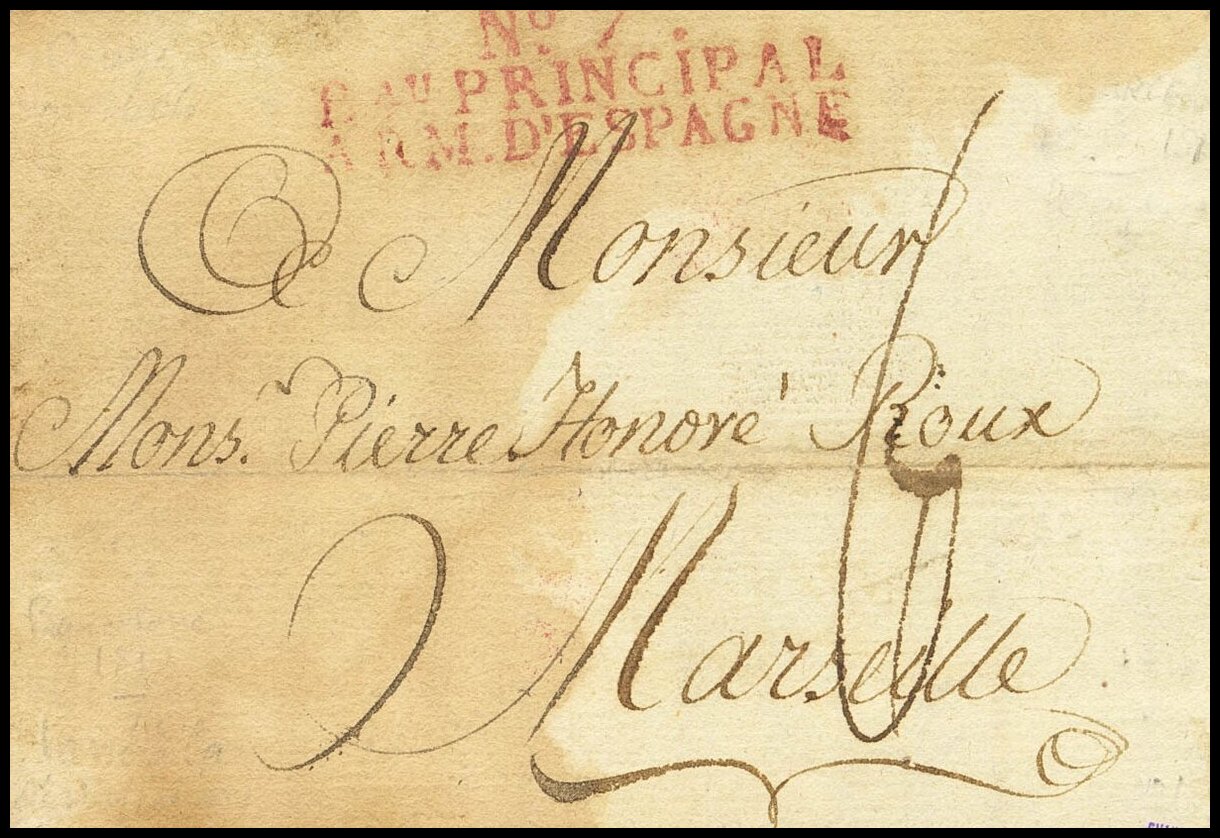 No. 7
Bau PRINCIPAL
ARM. D'ESPAGNE
Monsieur
Monsr. Pierre Honoré Roux
6
Marseille